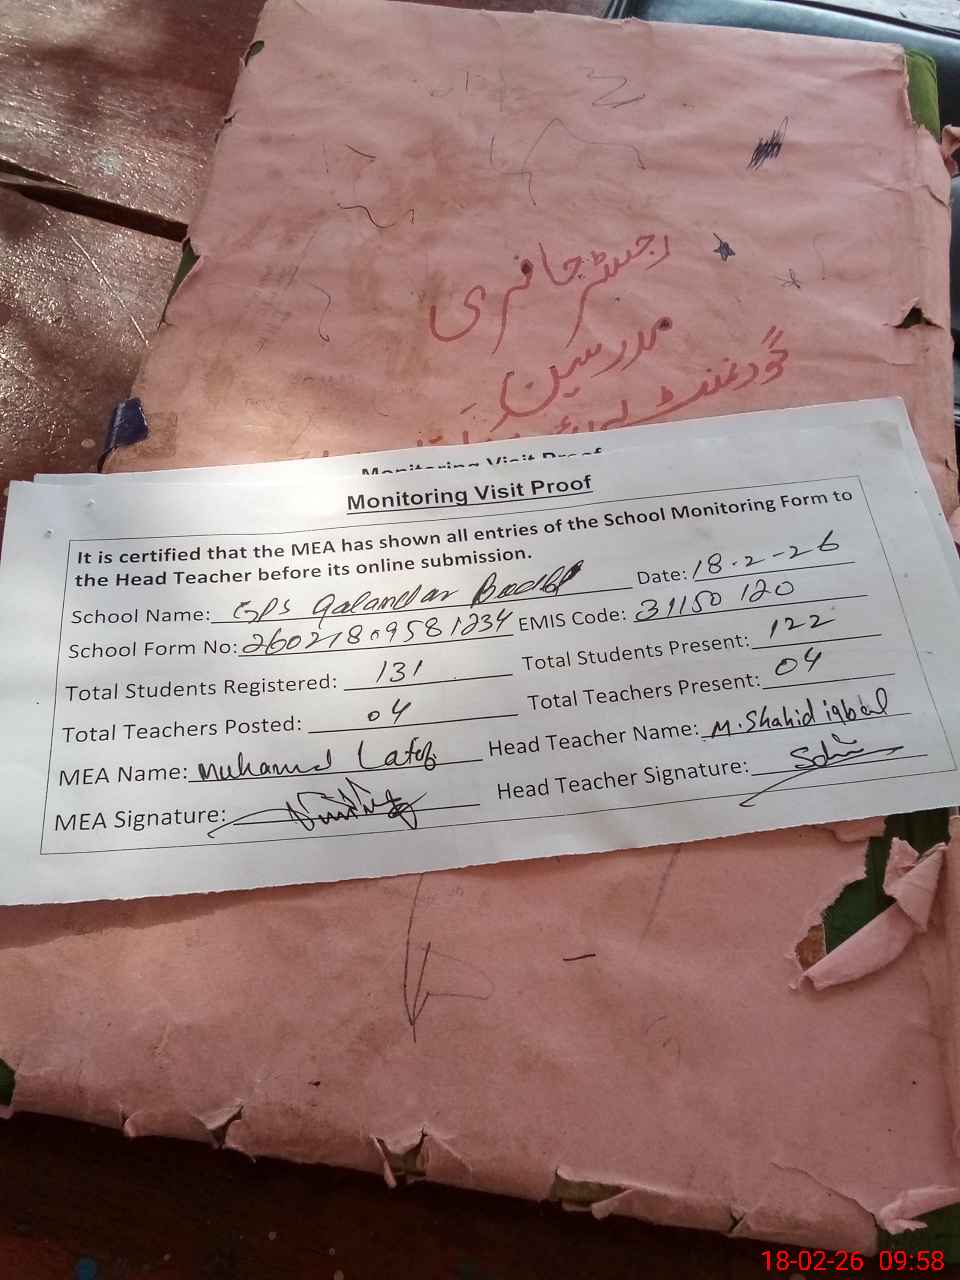 رجسٹر حاضری
مدرسین
گورنمنٹ
Monitoring Visit Proof
Monitoring Visit Proof
It is certified that the MEA has shown all entries of the School Monitoring Form to
the Head Teacher before its online submission.
School Name: GPS Qalandar Date: 18-2-26
School Form No: 26021809581234 EMIS Code: 31150120
Total Students Registered: 131 Total Students Present: 122
Total Teachers Posted: 04 Total Teachers Present: 04
MEA Name: Muhamd Latef Head Teacher Name: M. Shahid iqbal
MEA Signature: Head Teacher Signature:
18-02-26 09:58